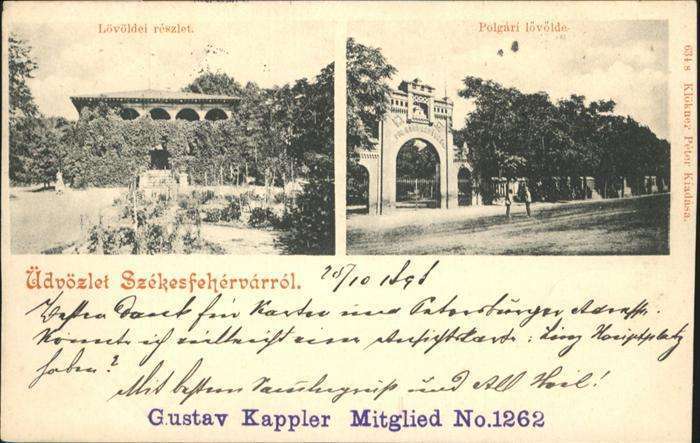 Lövöldei részlet.
Polgári lövölde.
634 8 Klökner Péter Kiadása.
Üdvözlet Székesfehérvárról.
25/10 1898
Besten Dank für Karte und Petersburger Adresse.
Könnte ich vielleicht eine Ansichtskarte: Linz Hauptplatz
haben?
Mit bestem Sammlergruß und All Heil!
Gustav Kappler Mitglied No.1262